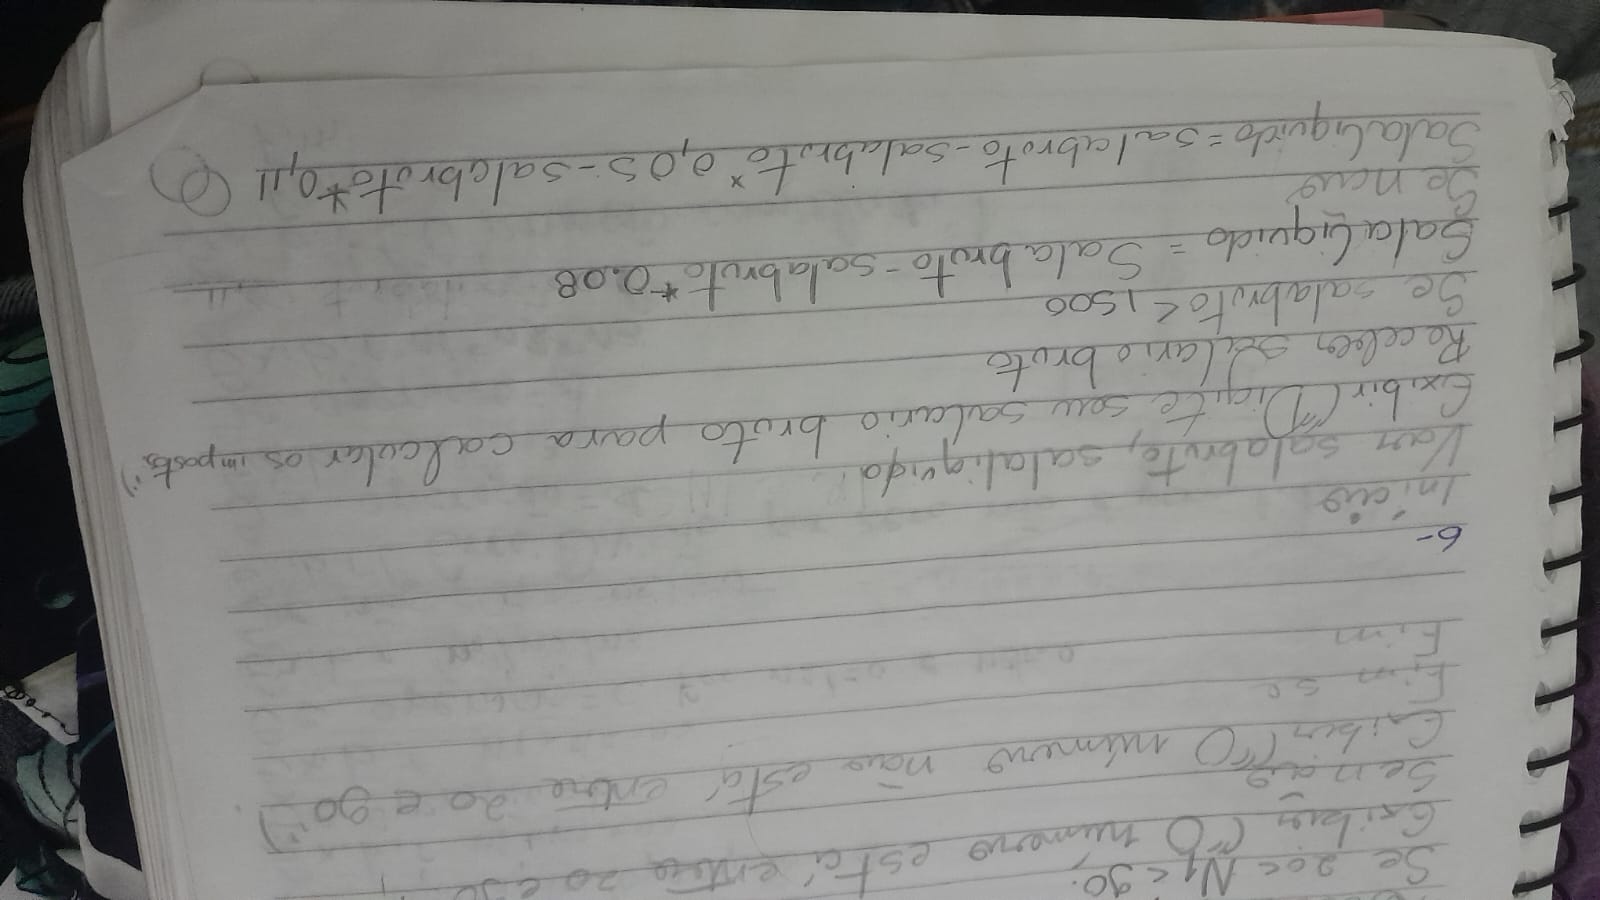 Se 20 < N1 < 90.
Exibir ("O numero está entre 20 e 90
Senão
Exiber ("O número não está entre 20 e 90")
Fim se
Fim
6-
Início
Var salabruto, salaliquido.
Exibir ("Digite seu salario bruto para calcular os impostos")
Receber salario bruto
Se salabruto < 1500
Salaliquido = Salabruto - salabruto * 0.08
Se não
Salaliquido = salabruto - salabruto * 0,05 - salabruto * 0,11